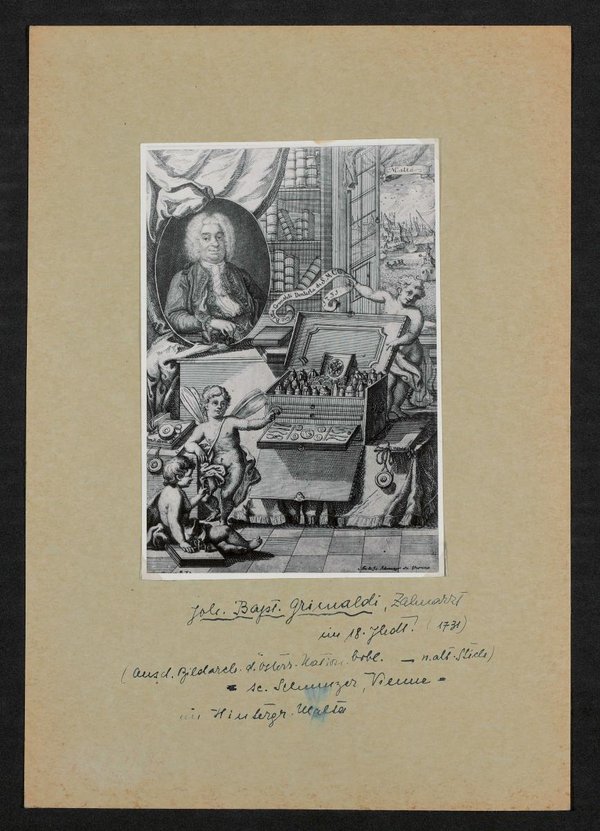 Malta
Joh. Bapt. Grimaldi, Zahnarzt
im 18. Jhdt. (1731)
(Aus d. Bildarch. d. österr. Nation. bibl. — n. alt. Stich)
= sc. Schmuzer, Vienne =
im Hintergr. Malta